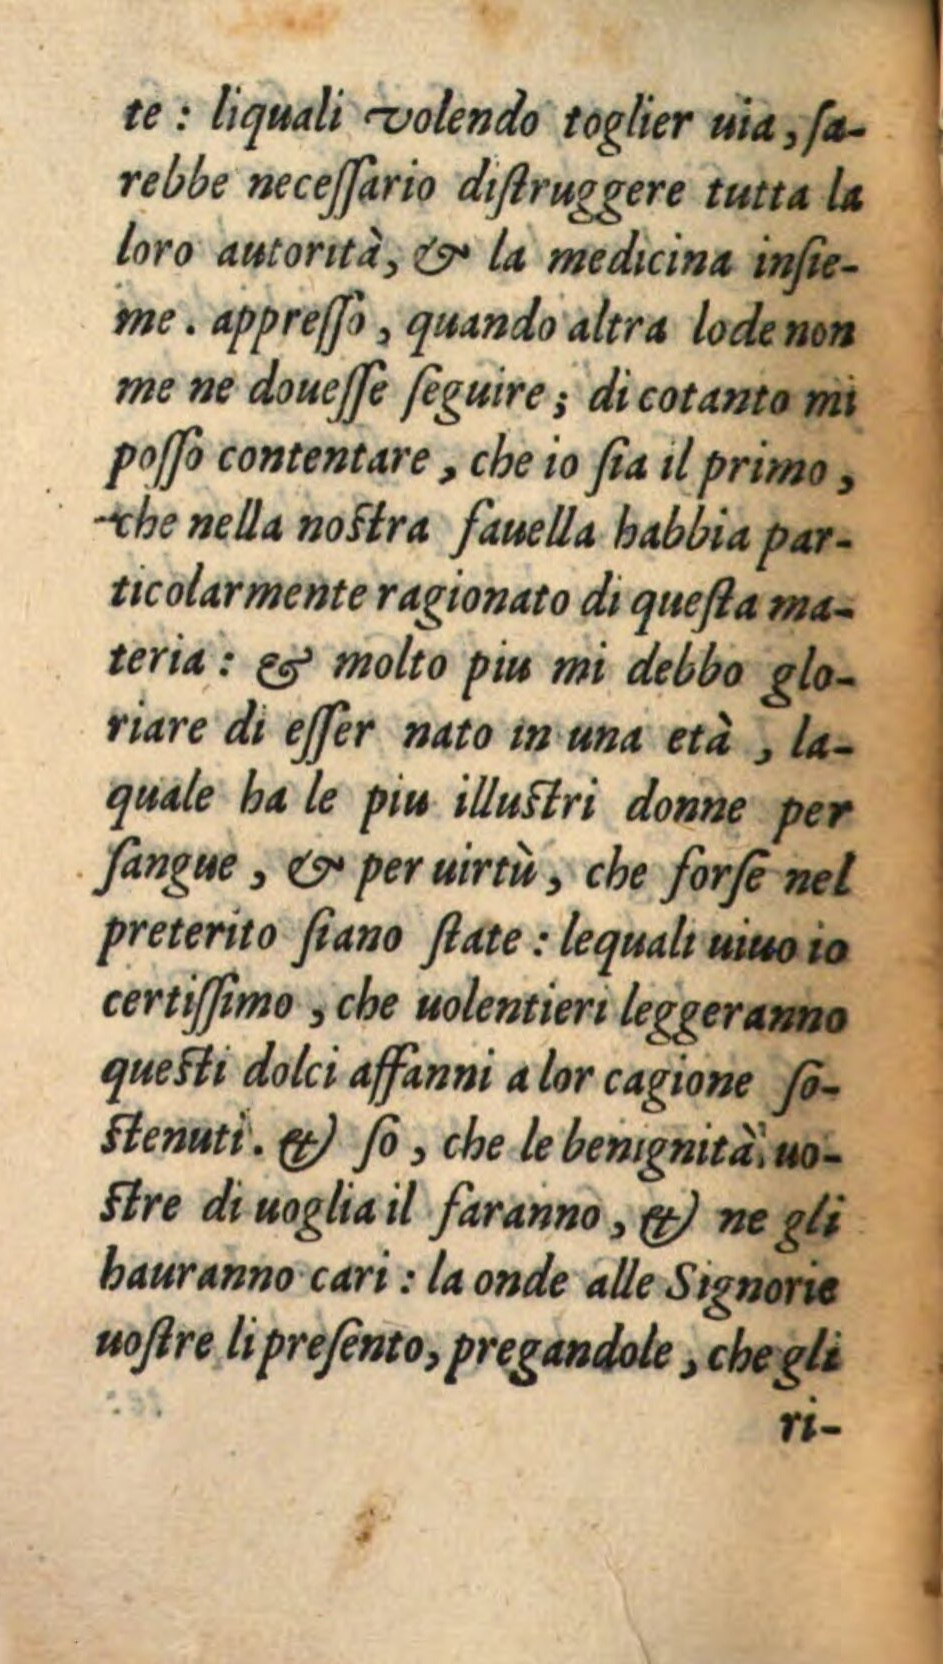 te : liquali volendo toglier uia, ſa-
rebbe neceſſario diſtruggere tutta la
loro autorità, & la medicina inſie-
me . appreſſo , quando altra lode non
me ne doueſſe ſeguire ; di cotanto mi
poſſo contentare , che io ſia il primo ,
che nella noſtra fauella habbia par-
ticolarmente ragionato di queſta ma-
teria : & molto piu mi debbo glo-
riare di eſſer nato in una età , la-
quale ha le piu illuſtri donne per
ſangue , & per uirtù , che forſe nel
preterito ſiano ſtate : lequali uiuo io
certiſſimo , che uolentieri leggeranno
queſti dolci affanni a lor cagione ſo-
ſtenuti . & ſo , che le benignità uo-
ſtre di uoglia il faranno , & ne gli
hauranno cari : la onde alle Signorie
uoſtre li preſento, pregandole , che gli
ri-